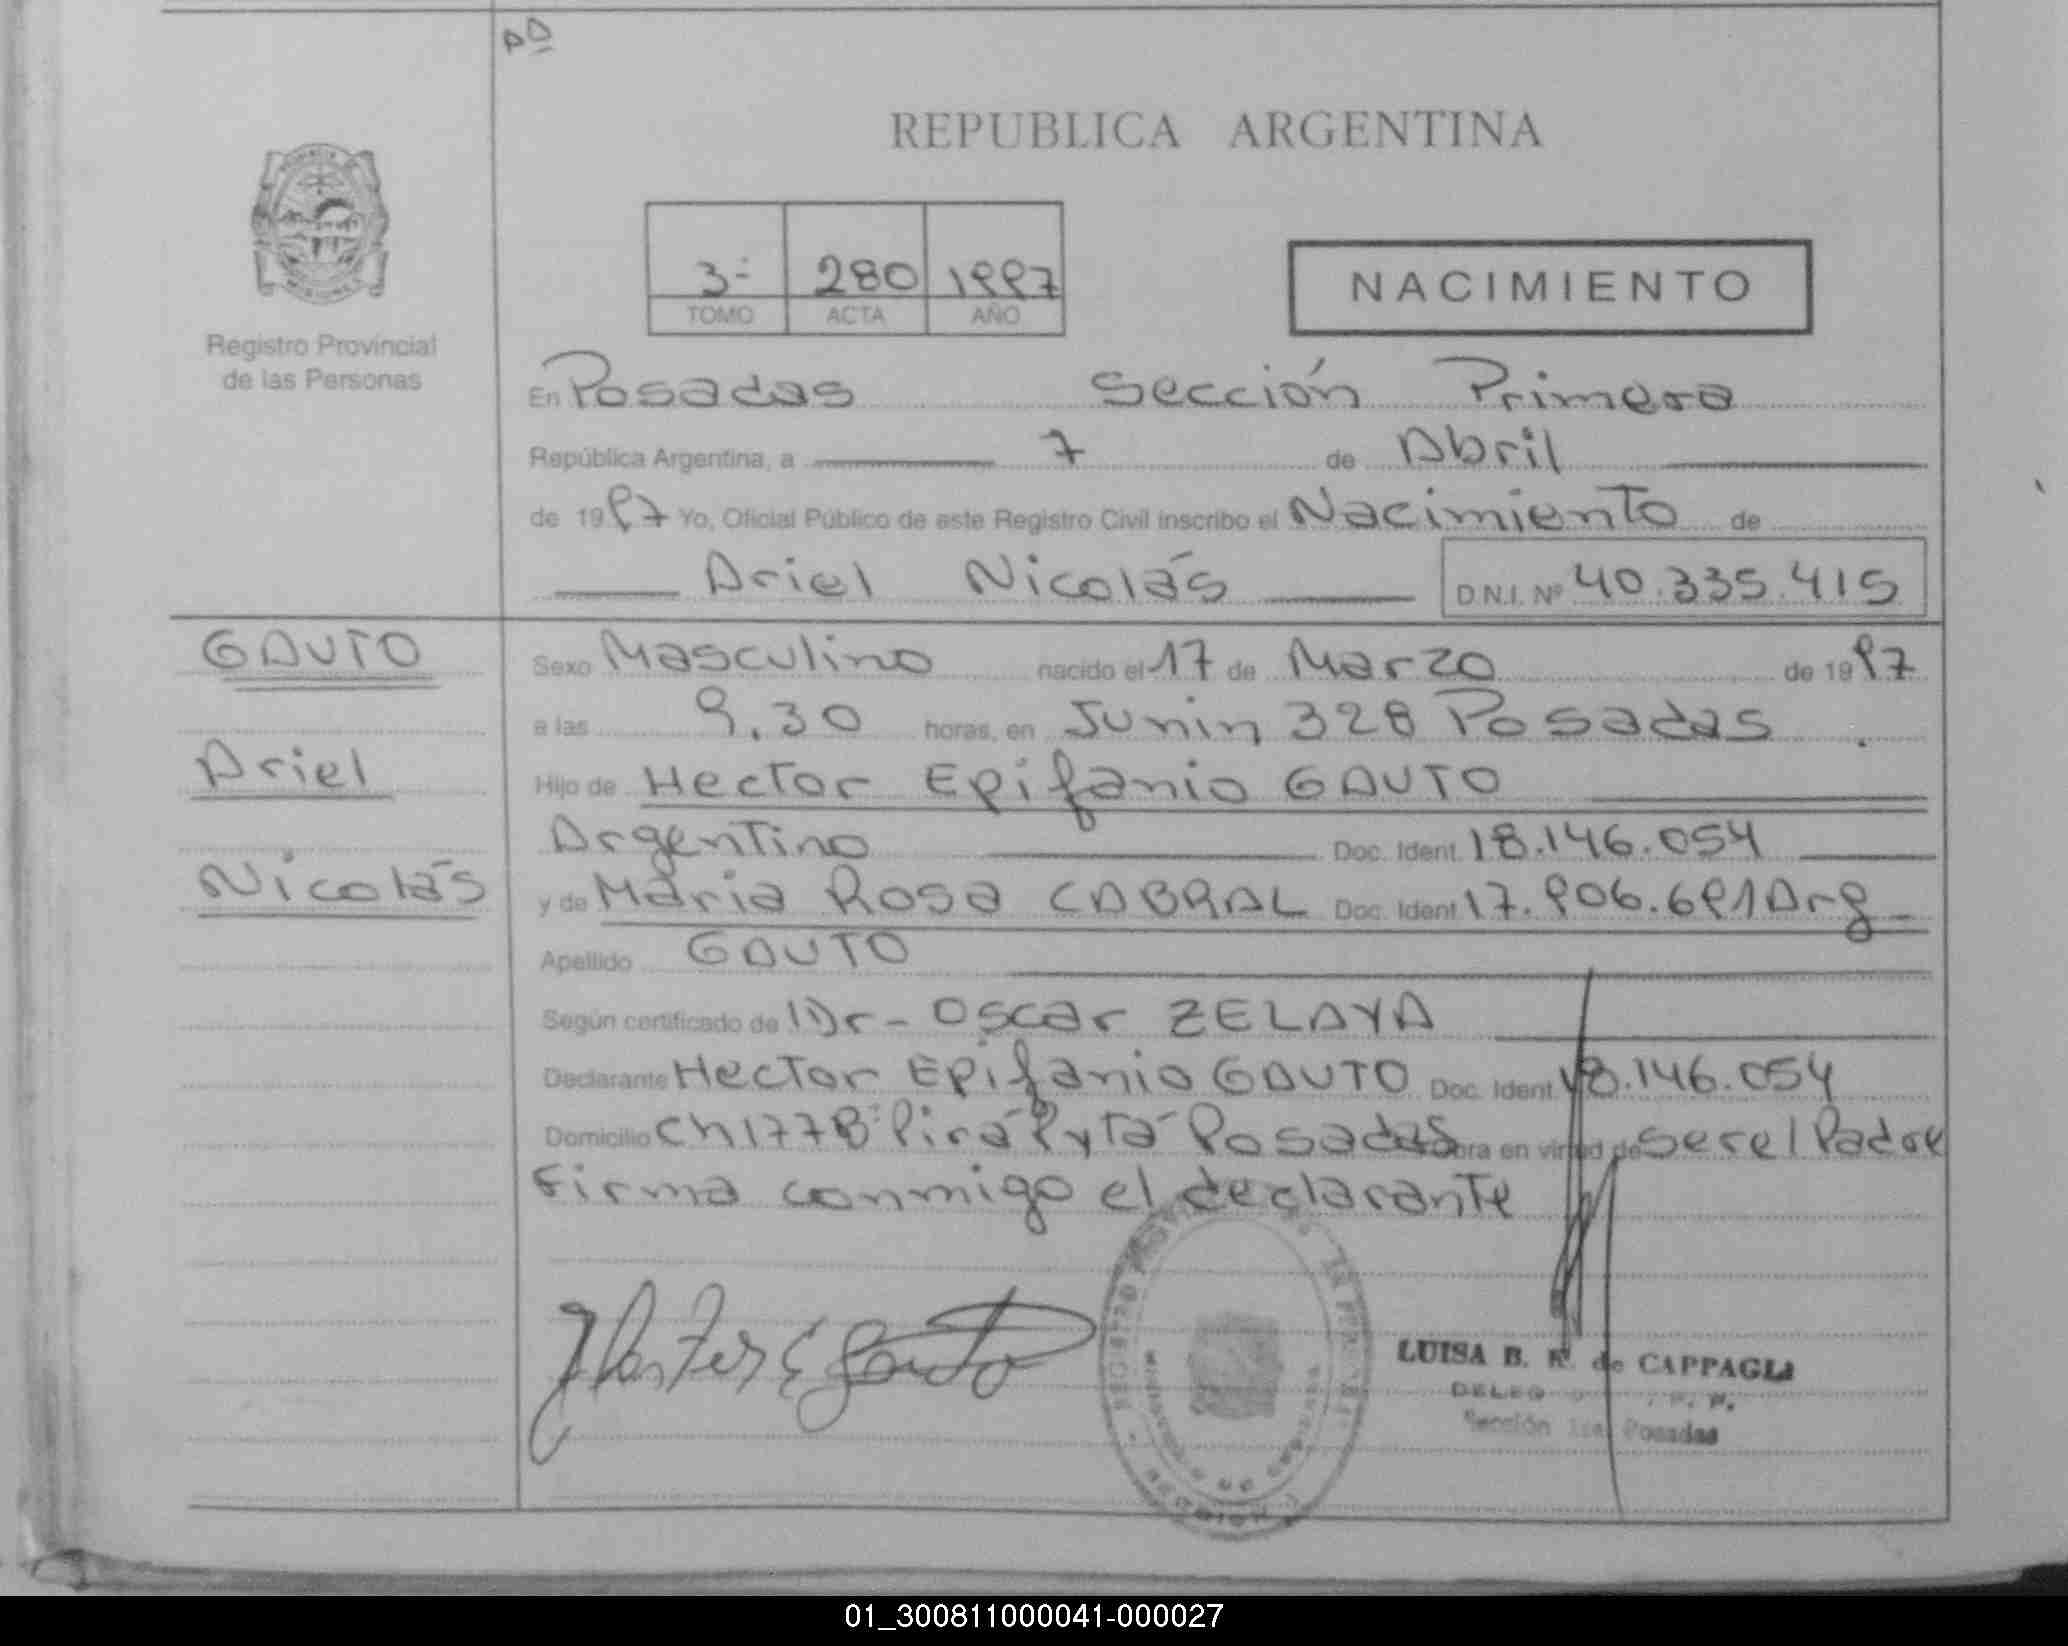 REPUBLICA ARGENTINA
3- 280 1997
TOMO ACTA AÑO
NACIMIENTO
Registro Provincial
de las Personas
En Posadas Sección Primera
República Argentina, a 7 de Abril
de 1997 Yo, Oficial Público de este Registro Civil inscribo el Nacimiento de
Ariel Nicolás D.N.I. Nº 40.335.415
GAUTO
Ariel
Nicolás
Sexo Masculino nacido el 17 de Marzo de 1997
a las 9.30 horas, en Junin 328 Posadas .
Hijo de Hector Epifanio GAUTO
Argentino Doc. Ident. 18.146.054
y de Maria Rosa CABRAL Doc. Ident 17.906.691 Arg
Apellido GAUTO
Según certificado de Dr- Oscar ZELAYA
Declarante Hector Epifanio GAUTO Doc. Ident. 18.146.054
Domicilio Ch 177 Bº Pirá Pytá Posadas obra en virtud de ser el Padre
Firma conmigo el declarante
LUISA B. R. de CAPPAGLI
Sección 1ra Posadas
01_300811000041-000027